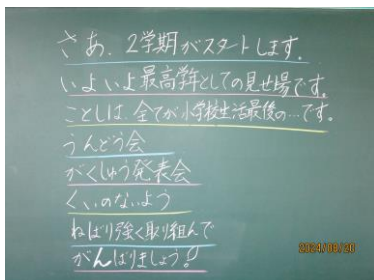 さあ、2学期がスタートします。
いよいよ最高学年としての見せ場です。
ことしは、全てが小学校生活最後の…です。
うんどう会
がくしゅう発表会
くいのないよう
ねばり強く取り組んで
がんばりましょう!
2024/08/20